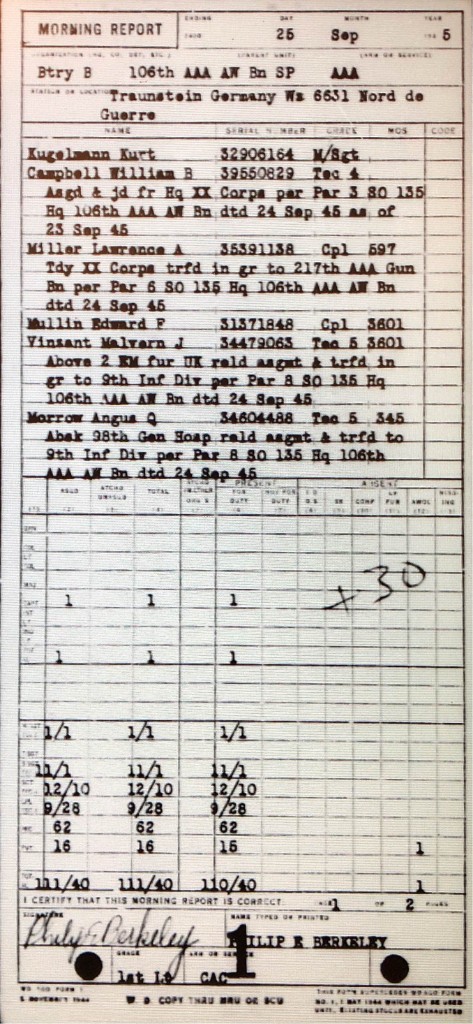 MORNING REPORT
ENDING DAY MONTH YEAR
25 Sep 5
Btry B 106th AAA AW Bn SP AAA
Traunstein Germany Wz 6631 Nord de
Guerre
NAME SERIAL NUMBER GRADE MOS CODE
Kugelmann Kurt 32906164 M/Sgt
Campbell William B 39550829 Tec 4
Asgd & jd fr Hq XX Corps per Par 3 SO 135
Hq 106th AAA AW Bn dtd 24 Sep 45 as of
23 Sep 45
Miller Lawrence A 35391138 Cpl 597
Tdy XX Corps trfd in gr to 217th AAA Gun
Bn per Par 6 SO 135 Hq 106th AAA AW Bn
dtd 24 Sep 45
Mullin Edward F 31371848 Cpl 3601
Vinsant Malvern J 34479063 Tec 5 3601
Above 2 EM fur UK reld asgmt & trfd in
gr to 9th Inf Div per Par 8 SO 135 Hq
106th AAA AW Bn dtd 24 Sep 45
Morrow Angus Q 34604488 Tec 5 345
Absk 98th Gen Hosp reld asgmt & trfd to
9th Inf Div per Par 8 SO 135 Hq 106th
AAA AW Bn dtd 24 Sep 45
PRESENT ABSENT
TOTAL
+30
1 1 1
1 1 1
1/1 1/1 1/1
11/1 11/1 11/1
12/10 12/10 12/10
9/28 9/28 9/28
62 62 62
16 16 15 1
111/40 111/40 110/40 1
I CERTIFY THAT THIS MORNING REPORT IS CORRECT 1 OF 2 PAGES
SIGNATURE NAME TYPED OR PRINTED
Philip E Berkeley PHILIP E BERKELEY
GRADE
1
1st Lt CAC
W. D. COPY THRU MRU OR SCU